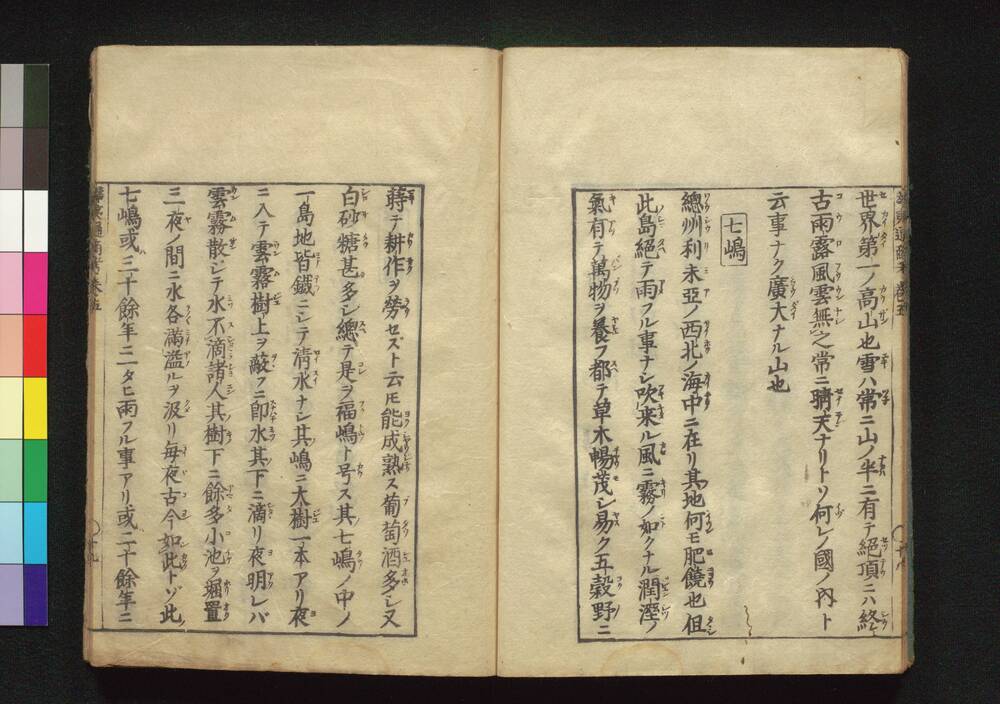 世界第一ノ高山也雪ハ常ニ山ノ半ニ有テ絶頂ニハ終
古雨露風雲無之常ニ晴天ナリトソ何レノ國ノ内ト
云事ナク廣大ナル山也
七嶋
總州利未亞ノ西北ノ海中ニ在リ其地何モ肥饒也但
此島絕テ雨フル事ナシ吹来ル風ニ霧ノ如クナル潤溼ノ
氣有テ萬物ヲ養フ都テ草木暢茂シ易ク五穀野ニ
蒔テ耕作ヲ勞セズト云𪜈能成熟ス葡萄酒多シ又
白砂糖甚多シ總テ是ヲ福嶋ト号ス其七嶋ノ中ノ
一島地皆鐵ニシテ清水ナシ其嶋ニ大樹一本アリ夜
ニ入テ雲霧樹上ヲ蔽フニ卽水其下ニ滴リ夜明レバ
雲霧散シテ水不滴諸人其樹下ニ餘多小池ヲ堀置
一夜ノ間ニ水各滿溢ルヲ汲リ毎夜古今如此トゾ此
七嶋或ハ三十餘年ニ一タヒ雨フル事アリ或ハ二十餘年ニ